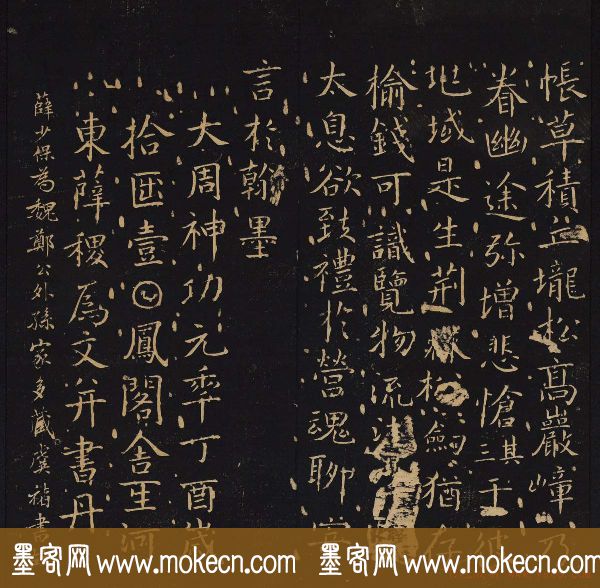 帳草積丘壠松高巖嶂乃
眷幽途弥增悲愴其三于
地域是生荆松劒猶存
榆錢可識覽物流
太息欲致禮於營魂聊寘
言於翰墨
大周神功元秊丁酉歲
拾𠥱壹𡆠鳳閣舍𤯔河
東薛稷爲文并書丹
薛少保為魏鄭公外孫家多藏虞褚書
墨客网 www.mokecn.com 墨客网 www.mokecn.com